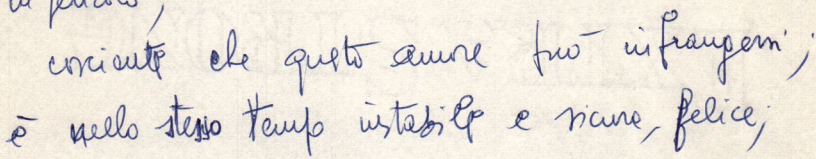 cosciente che questo amore può infrangersi;
è nello stesso tempo instabile e sicura, felice;